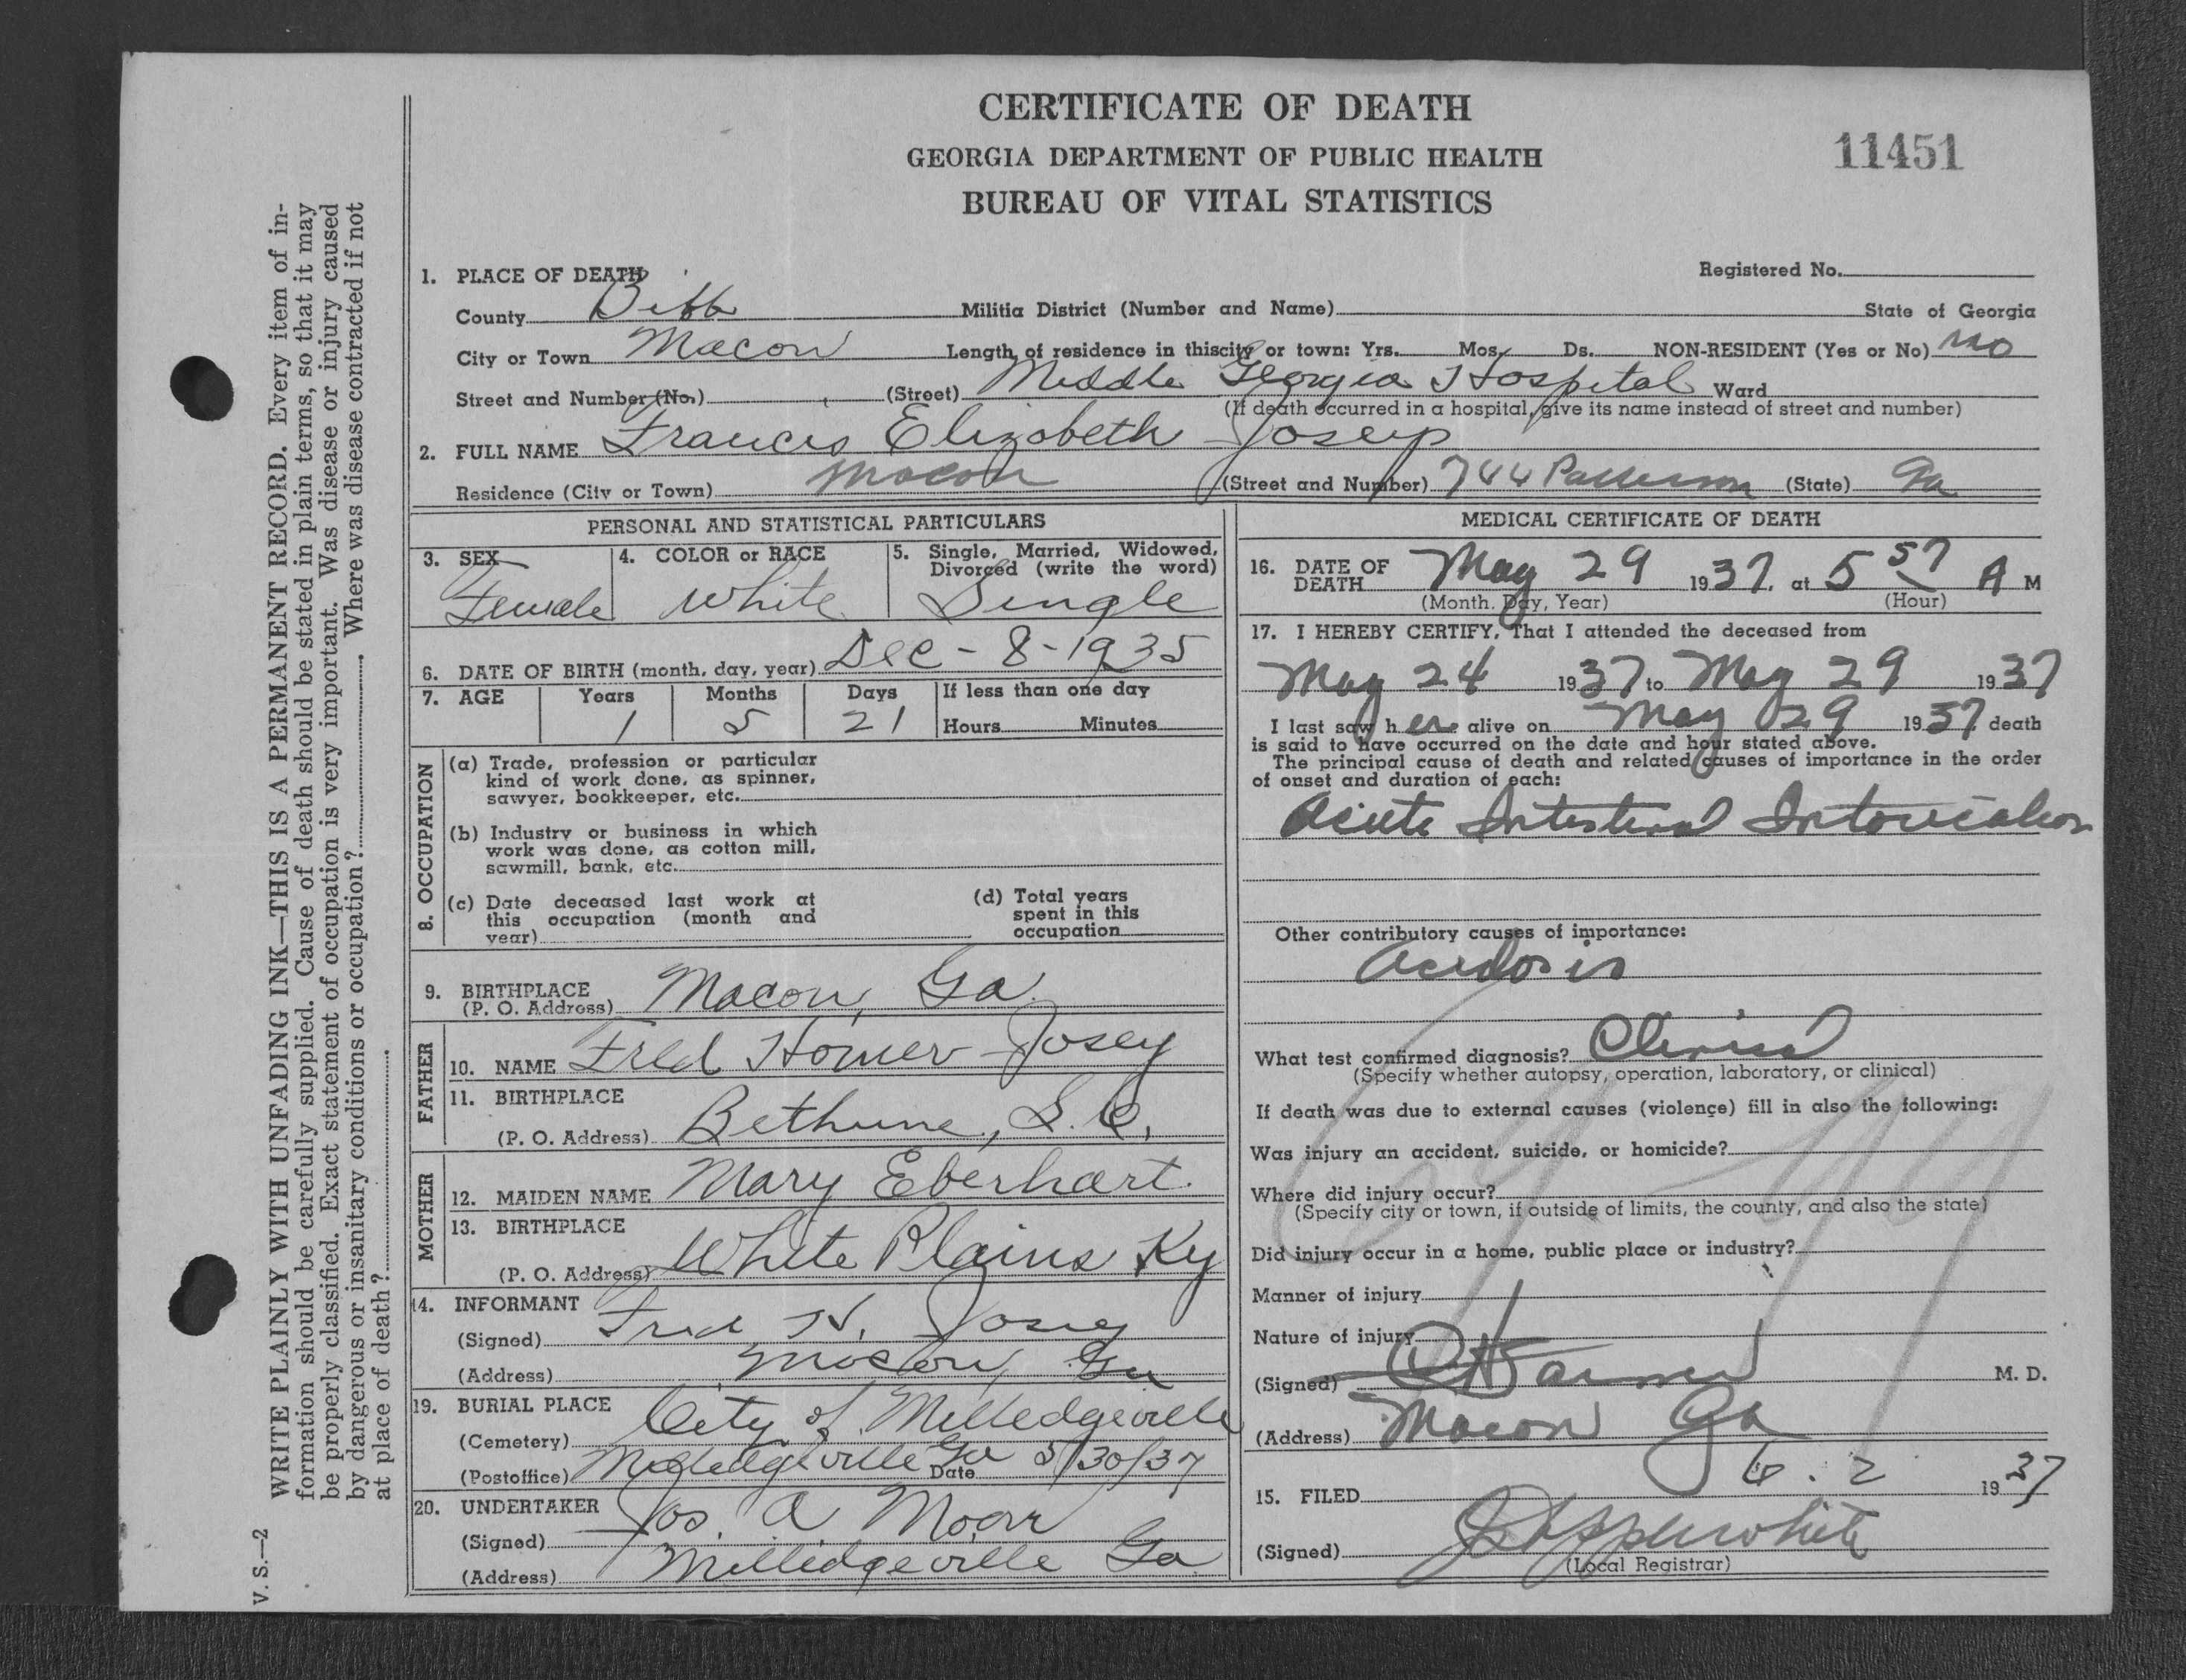 CERTIFICATE OF DEATH
GEORGIA DEPARTMENT OF PUBLIC HEALTH
BUREAU OF VITAL STATISTICS
11451
1. PLACE OF DEATH
Registered No.
County Bibb Militia District (Number and Name) State of Georgia
City or Town Macon Length of residence in this city or town: Yrs. Mos. Ds. NON-RESIDENT (Yes or No) no
Street and Number (No.) (Street) Middle Georgia Hospital Ward
(If death occurred in a hospital, give its name instead of street and number)
2. FULL NAME Francis Elizabeth Josey
Residence (City or Town) Macon (Street and Number) 744 Patterson (State) Ga
PERSONAL AND STATISTICAL PARTICULARS
3. SEX Female
4. COLOR or RACE White
5. Single, Married, Widowed, Divorced (write the word) Single
6. DATE OF BIRTH (month, day, year) Dec - 8 - 1935
7. AGE Years Months Days If less than one day
1 5 21 Hours Minutes
8. OCCUPATION
(a) Trade, profession or particular
kind of work done, as spinner,
sawyer, bookkeeper, etc.
(b) Industry or business in which
work was done, as cotton mill,
sawmill, bank, etc.
(c) Date deceased last work at
this occupation (month and
year)
(d) Total years
spent in this
occupation
9. BIRTHPLACE
(P. O. Address) Macon, Ga.
FATHER
10. NAME Fred Homer Josey
11. BIRTHPLACE
(P. O. Address) Bethune, S. C.
MOTHER
12. MAIDEN NAME Mary Eberhart
13. BIRTHPLACE
(P. O. Address) White Plains Ky
14. INFORMANT
(Signed) Fred H. Josey
(Address) Macon, Ga
19. BURIAL PLACE
(Cemetery) City of Milledgeville
(Postoffice) Milledgeville Ga Date 5/30/37
20. UNDERTAKER
(Signed) Jos. A Moore
(Address) Milledgeville Ga
MEDICAL CERTIFICATE OF DEATH
16. DATE OF DEATH May 29 1937, at 5 57 A M
(Month, Day, Year) (Hour)
17. I HEREBY CERTIFY, That I attended the deceased from
May 24 1937, to May 29 1937
I last saw her alive on May 29 1937 death
is said to have occurred on the date and hour stated above.
The principal cause of death and related causes of importance in the order
of onset and duration of each:
Acute Intestinal Intoxication
Other contributory causes of importance:
Acidosis
What test confirmed diagnosis? Clinical
(Specify whether autopsy, operation, laboratory, or clinical)
If death was due to external causes (violence) fill in also the following:
Was injury an accident, suicide, or homicide?
Where did injury occur?
(Specify city or town, if outside of limits, the county, and also the state)
Did injury occur in a home, public place or industry?
Manner of injury
Nature of injury
(Signed) M. D.
(Address) Macon Ga
15. FILED 6. 2 1937
(Signed)
(Local Registrar)
WRITE PLAINLY WITH UNFADING INK—THIS IS A PERMANENT RECORD. Every item of in-
formation should be carefully supplied. Cause of death should be stated in plain terms, so that it may
be properly classified. Exact statement of occupation is very important. Was disease or injury caused
by dangerous or insanitary conditions or occupation? Where was disease contracted if not
at place of death?
V. S.—2